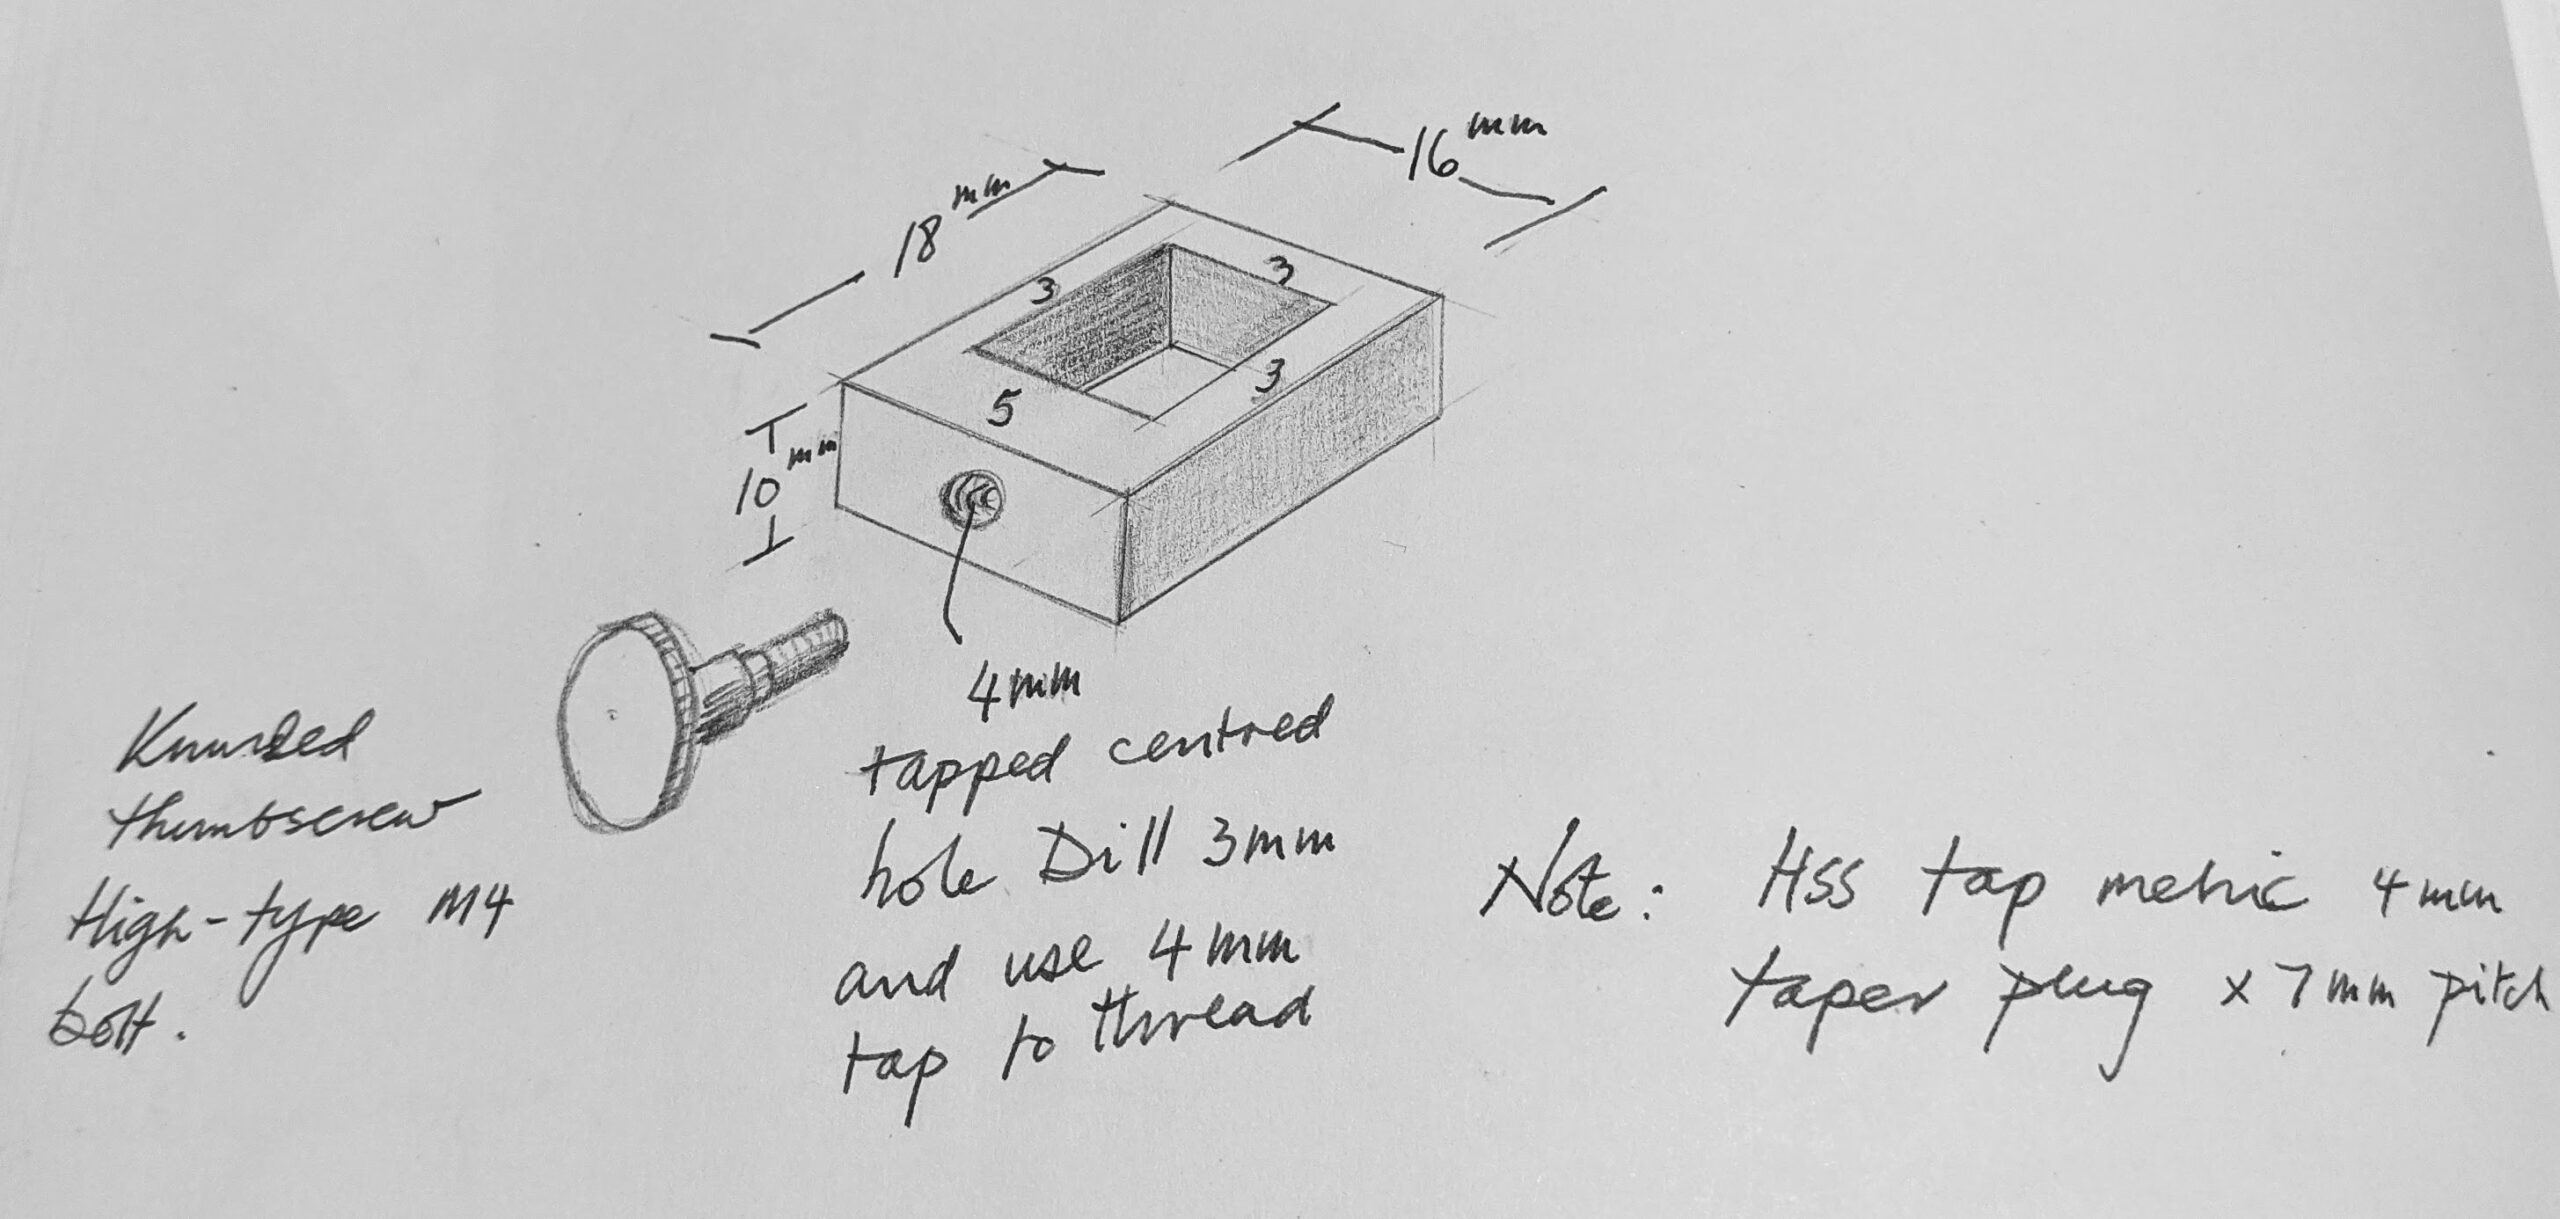 16 mm
18 mm
3
3
3
5
10 mm
4mm
tapped centred
hole Dill 3mm
and use 4mm
tap to thread
Knurled
thumbscrew
High-type M4
bolt.
Note: HSS tap metric 4mm
taper plug x 7mm pitch